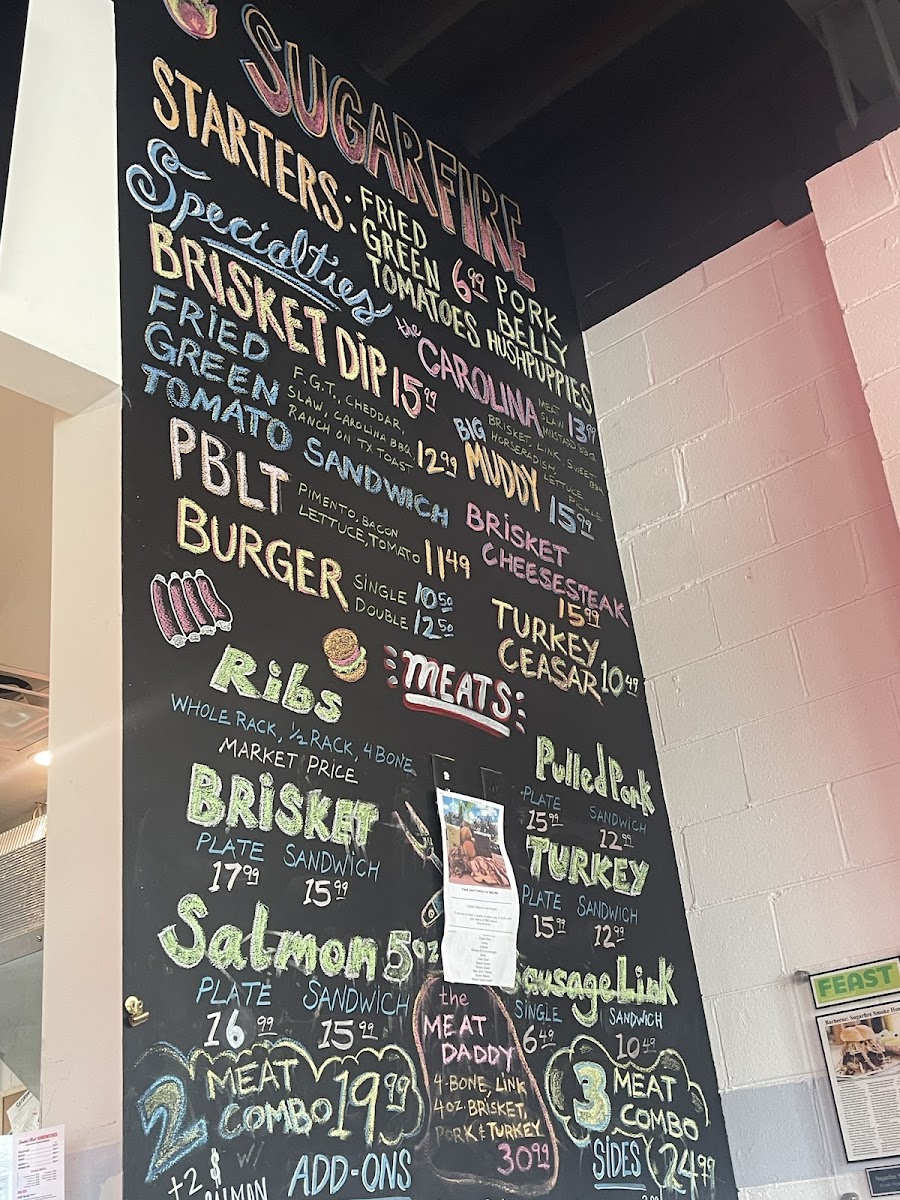 SUGARFIRE
STARTERS:
FRIED
GREEN
TOMATOES
6.99
PORK
BELLY
HUSHPUPPIES
Specialties
BRISKET DIP 15.99
the
CAROLINA
MEAT
SLAW
MUSTARD BBQ
13.99
FRIED
GREEN
TOMATO SANDWICH
F.G.T., CHEDDAR,
SLAW, CAROLINA BBQ
RANCH ON TX TOAST
12.99
BIG
MUDDY
BRISKET, LINK, SWEET BBQ
HORSERADISH,
LETTUCE
PICKLE
15.99
PBLT
PIMENTO, BACON
LETTUCE, TOMATO
11.49
BRISKET
CHEESESTEAK
15.99
BURGER
SINGLE 10.50
DOUBLE 12.50
TURKEY
CEASAR 10.49
MEATS
Ribs
WHOLE RACK, 1/2 RACK, 4 BONE
MARKET PRICE
Pulled Pork
PLATE
15.99
SANDWICH
12.99
BRISKET
PLATE
17.99
SANDWICH
15.99
TURKEY
PLATE
15.99
SANDWICH
12.99
Salmon 5oz
PLATE
16.99
SANDWICH
15.99
Sausage Link
SINGLE
6.49
SANDWICH
10.49
2 MEAT
COMBO 19.99
the
MEAT
DADDY
4-BONE, LINK
4OZ. BRISKET,
PORK & TURKEY
30.99
3 MEAT
COMBO
24.99
+2$
w/
SALMON
ADD-ONS
SIDES
FEAST
Barbecue: Sugarfire Smoke